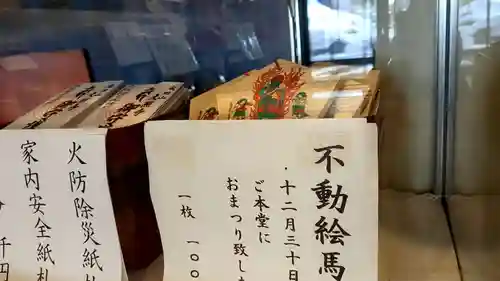 不動絵馬
・十二月三十日
ご本堂に
おまつり致し
一枚 一〇〇
火防除災紙札
家内安全紙札
千円